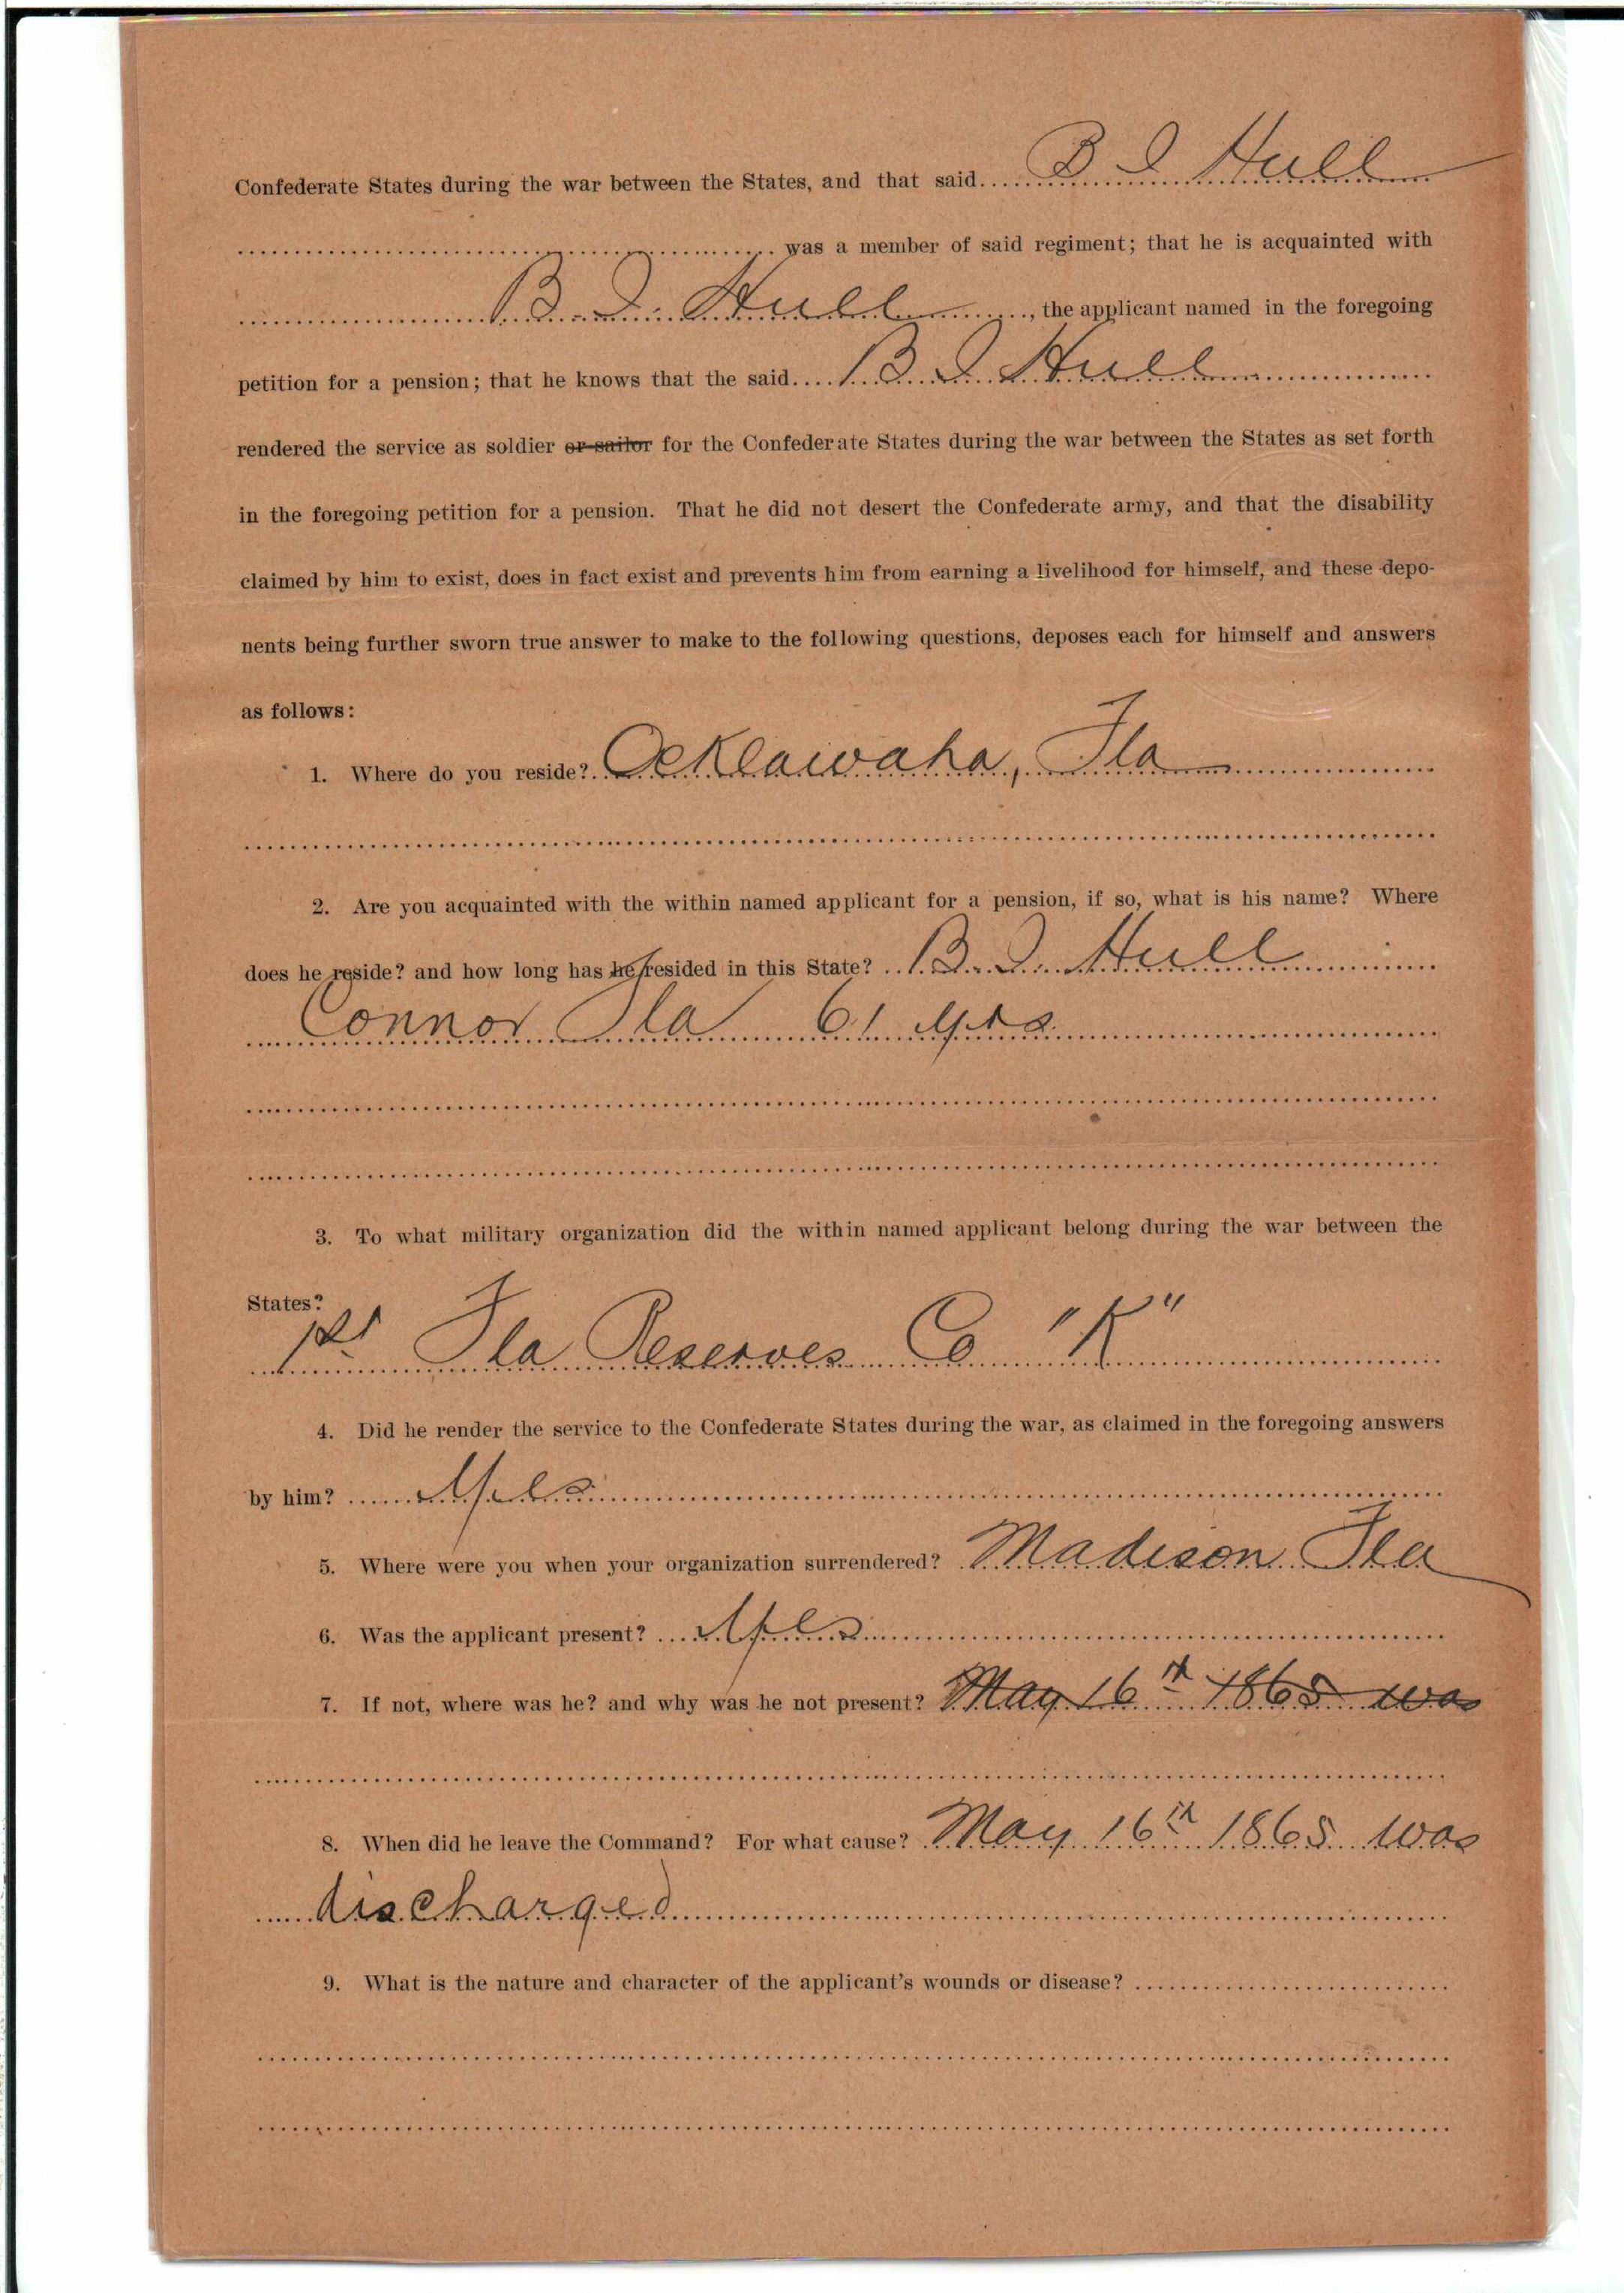 Confederate States during the war between the States, and that said B I Hull
was a member of said regiment; that he is acquainted with
B. I. Hull, the applicant named in the foregoing
petition for a pension; that he knows that the said B I Hull
rendered the service as soldier or sailor for the Confederate States during the war between the States as set forth
in the foregoing petition for a pension. That he did not desert the Confederate army, and that the disability
claimed by him to exist, does in fact exist and prevents him from earning a livelihood for himself, and these depo-
nents being further sworn true answer to make to the following questions, deposes each for himself and answers
as follows:
1. Where do you reside? Ocklawaha, Fla
2. Are you acquainted with the within named applicant for a pension, if so, what is his name? Where
does he reside? and how long has he resided in this State? B. I. Hull
Connor Fla 61 yrs
3. To what military organization did the within named applicant belong during the war between the
States?
1st Fla Reserves Co "K"
4. Did he render the service to the Confederate States during the war, as claimed in the foregoing answers
by him? Yes
5. Where were you when your organization surrendered? Madison Fla
6. Was the applicant present? Yes
7. If not, where was he? and why was he not present? May 16th 1865 was
8. When did he leave the Command? For what cause? May 16th 1865 was
discharged
9. What is the nature and character of the applicant's wounds or disease?